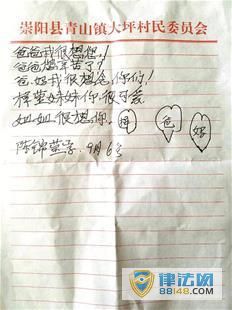 崇阳县青山镇大坪村民委员会
爸爸我很想您!
爸爸您辛苦了?
爸.妈我很想念你们!
梓萱妹妹你很可爱
姐姐很想你.
梓
爸
妈
陈锦萱写.9月6号
律法网
88148.com